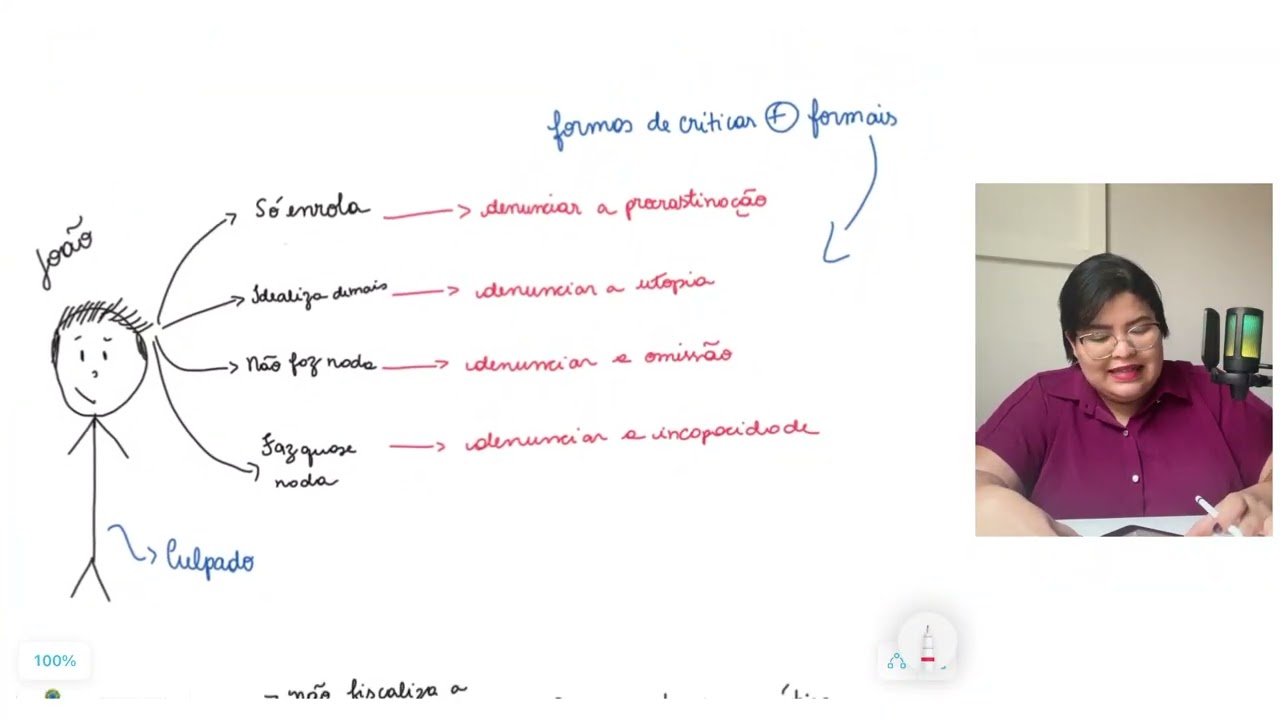 formas de criticar + formais
João
Só enrola → denunciar a procrastinação
Idealiza demais → denunciar a utopia
Não faz nada → denunciar a omissão
Faz quase → denunciar a incapacidade
nada
Culpado
100%
não fiscaliza a